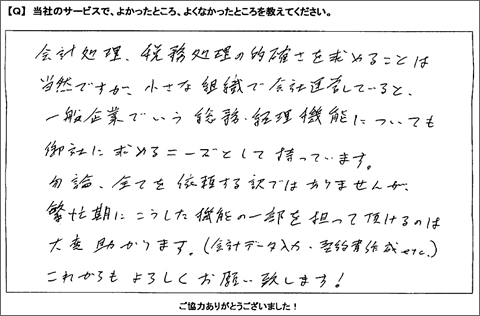 【Q】当社のサービスで、よかったところ、よくなかったところを教えてください。
会計処理、税務処理の的確さを求めることは
当然ですが、小さな組織で会社運営していると、
一般企業でいう総務・経理機能についても
御社に求めるニーズとして持っています。
勿論、全てを依頼する訳ではありませんが、
繁忙期にこうした機能の一部を担って頂けるのは
大変助かります。(会計データ入力・契約書作成etc.)
これからもよろしくお願い致します!
ご協力ありがとうございました!